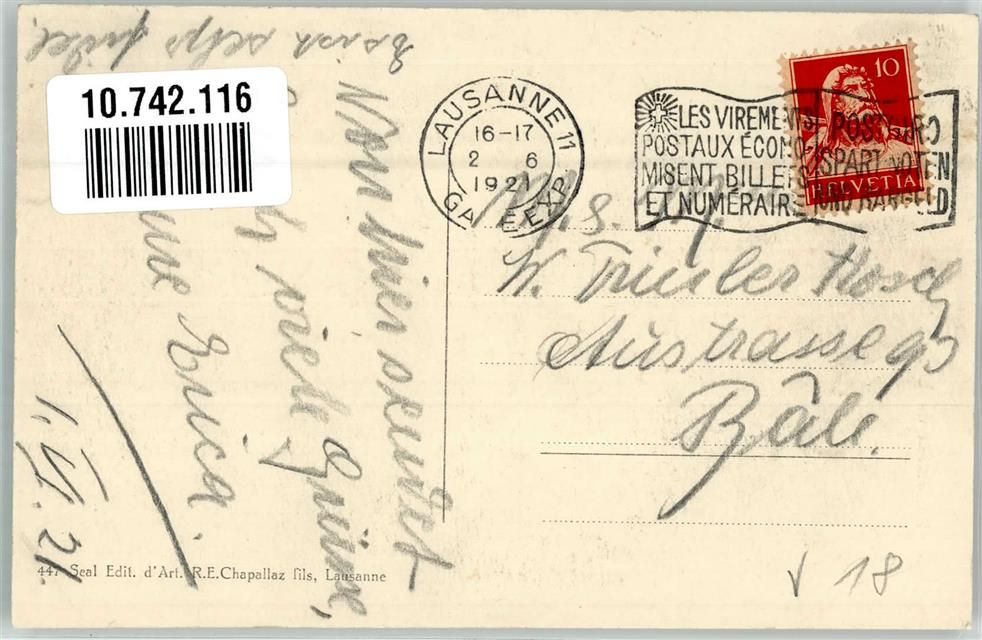 10.742.116
LAUSANNE 11
16-17
2 6
1921
GARE EXP
LES VIREMENTS
POSTAUX ÉCONO-
MISENT BILLETS
ET NUMÉRAIRE
POSTGIRO
SPART NOTEN
UND BARGELD
10
HELVETIA
W. Trüsler Kosch
Austrasse 95
Bâle.
Von hier sendet
viele Grüsse,
Erica.
1. VI. 21.
447 Seal Edit. d'Art. R.E.Chapallaz fils, Lausanne
v 18